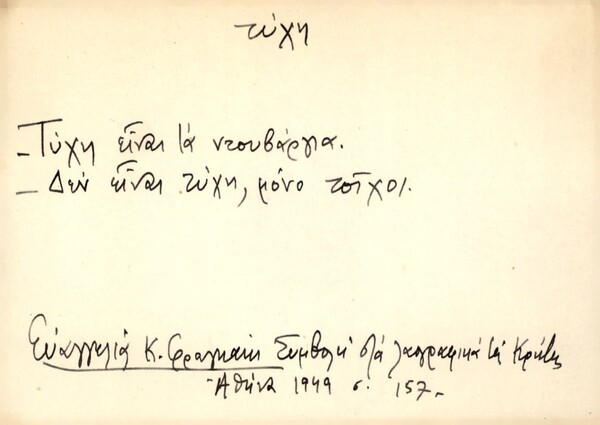 τύχη
- Τύχη εἶναι τά ντουβάργια.
- Δέν εἶναι τύχη, μόνο τοῖχοι.
Εὐαγγελία Κ. Φραγκάκι Συμβολή στά λαογραφικά τῆς Κρήτης
Ἀθήνα 1949 σ. 157.-